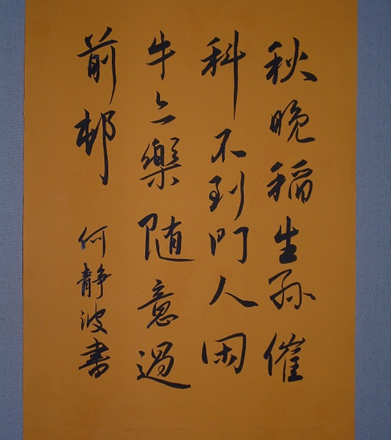 秋晚稻生孙催
科不到门人闲
牛亦樂随意過
前邨
何静波書